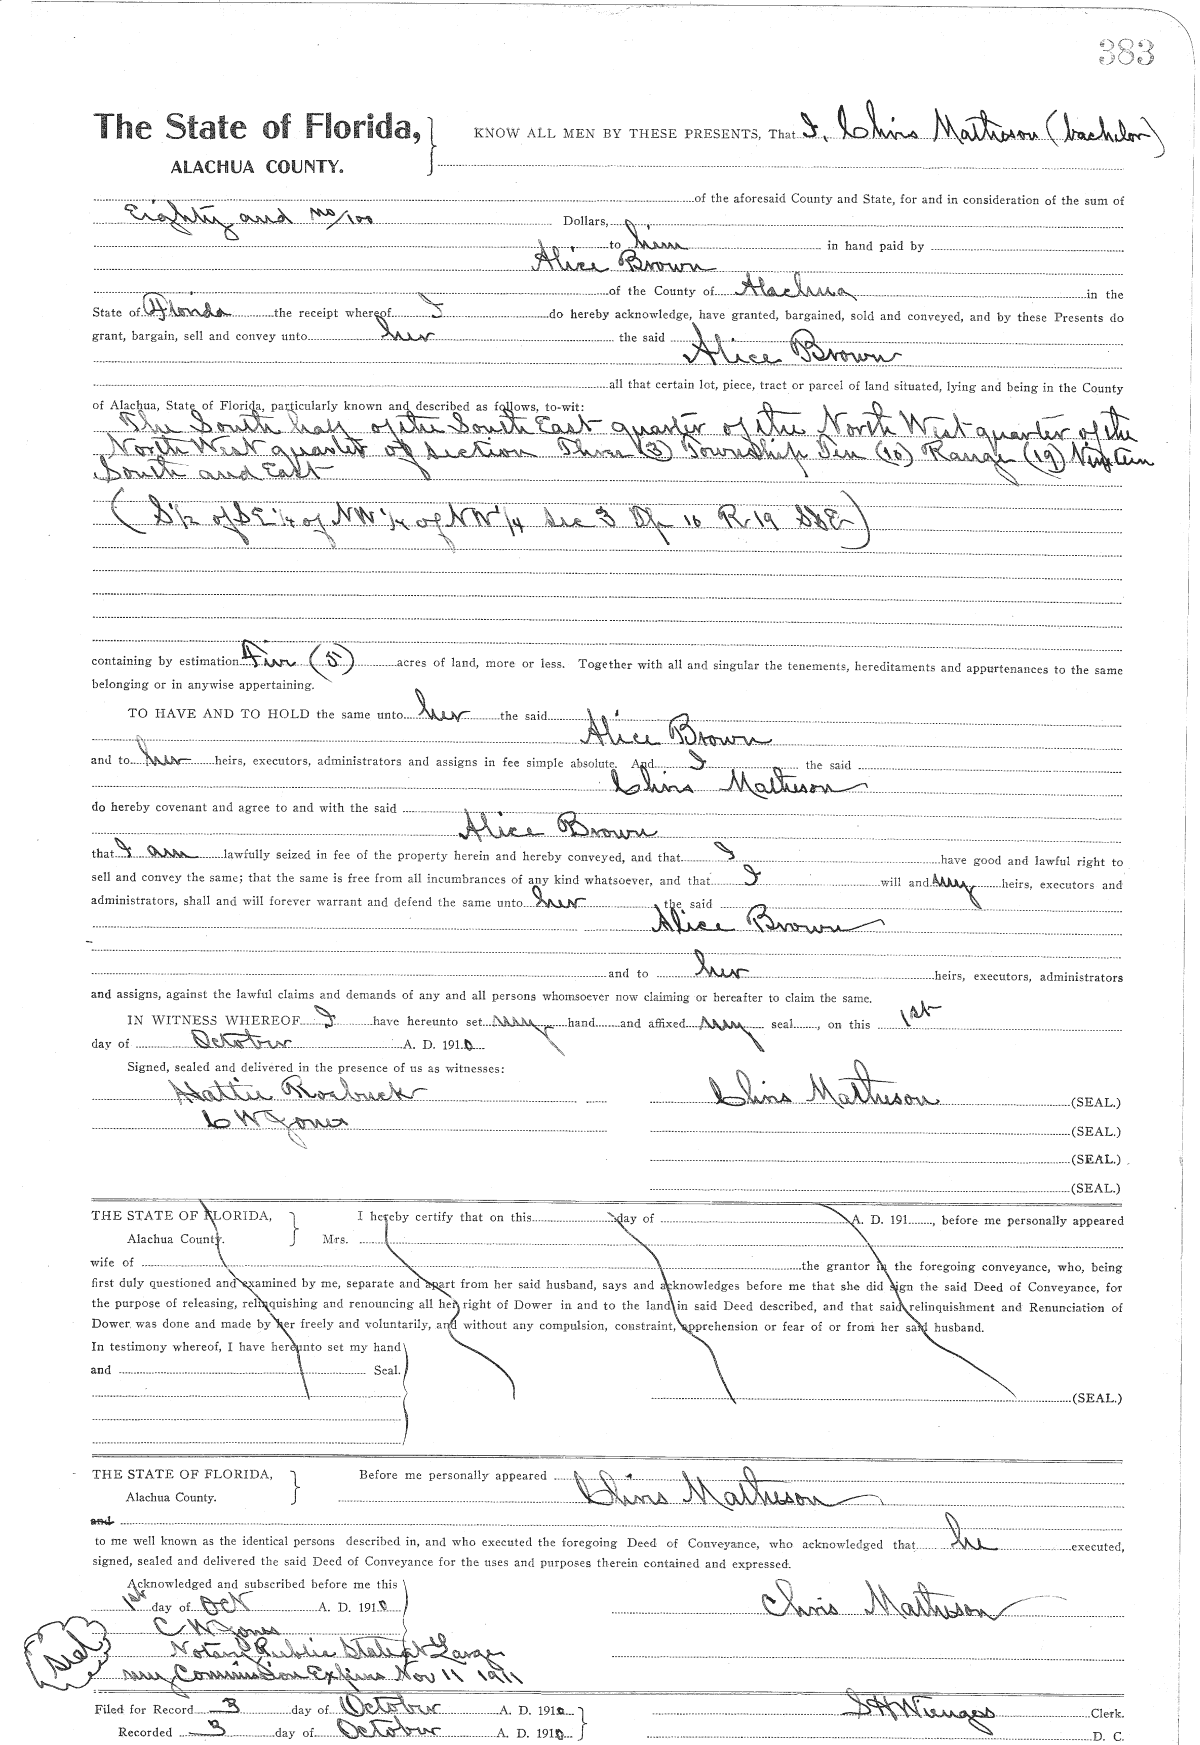 383
The State of Florida,
ALACHUA COUNTY.
KNOW ALL MEN BY THESE PRESENTS, That I, Chris Matheson (bachelor)
of the aforesaid County and State, for and in consideration of the sum of
Eighty and no/100 Dollars,
to him in hand paid by
Alice Brown
of the County of Alachua in the
State of Florida the receipt whereof I do hereby acknowledge, have granted, bargained, sold and conveyed, and by these Presents do
grant, bargain, sell and convey unto her the said
Alice Brown
all that certain lot, piece, tract or parcel of land situated, lying and being in the County
of Alachua, State of Florida, particularly known and described as follows, to-wit:
The South half of the South East quarter of the North West quarter of the
North West quarter of Section Three (3) Township Ten (10) Range (19) Nineteen
South and East
(S½ of SE¼ of NW¼ of NW¼ Sec 3 Tp 10 R 19 S&E)
containing by estimation Five (5) acres of land, more or less. Together with all and singular the tenements, hereditaments and appurtenances to the same
belonging or in anywise appertaining.
TO HAVE AND TO HOLD the same unto her the said
Alice Brown
and to her heirs, executors, administrators and assigns in fee simple absolute. And I the said
Chris Matheson
do hereby covenant and agree to and with the said
Alice Brown
that I am lawfully seized in fee of the property herein and hereby conveyed, and that I have good and lawful right to
sell and convey the same; that the same is free from all incumbrances of any kind whatsoever, and that I will and my heirs, executors and
administrators, shall and will forever warrant and defend the same unto her the said
Alice Brown
and to her heirs, executors, administrators
and assigns, against the lawful claims and demands of any and all persons whomsoever now claiming or hereafter to claim the same.
IN WITNESS WHEREOF I have hereunto set my hand and affixed my seal, on this 1st
day of October A. D. 1910
Signed, sealed and delivered in the presence of us as witnesses:
Hattie Roebuck
C W Jones
Chris Matheson (SEAL.)
(SEAL.)
(SEAL.)
(SEAL.)
THE STATE OF FLORIDA,
Alachua County.
I hereby certify that on this day of A. D. 191, before me personally appeared
Mrs.
wife of the grantor in the foregoing conveyance, who, being
first duly questioned and examined by me, separate and apart from her said husband, says and acknowledges before me that she did sign the said Deed of Conveyance, for
the purpose of releasing, relinquishing and renouncing all her right of Dower in and to the land in said Deed described, and that said relinquishment and Renunciation of
Dower was done and made by her freely and voluntarily, and without any compulsion, constraint, apprehension or fear of or from her said husband.
In testimony whereof, I have hereunto set my hand
and Seal.
(SEAL.)
THE STATE OF FLORIDA,
Alachua County.
Before me personally appeared
Chris Matheson
and
to me well known as the identical persons described in, and who executed the foregoing Deed of Conveyance, who acknowledged that he executed,
signed, sealed and delivered the said Deed of Conveyance for the uses and purposes therein contained and expressed.
Acknowledged and subscribed before me this
1st day of Oct A. D. 1910
Chris Matheson
C W Jones
Notary Public State at Large
My Commission Expires Nov 11 1911
Seal
Filed for Record 3 day of October A. D. 1910
Recorded 3 day of October A. D. 1910
S H Wienges Clerk.
D. C.